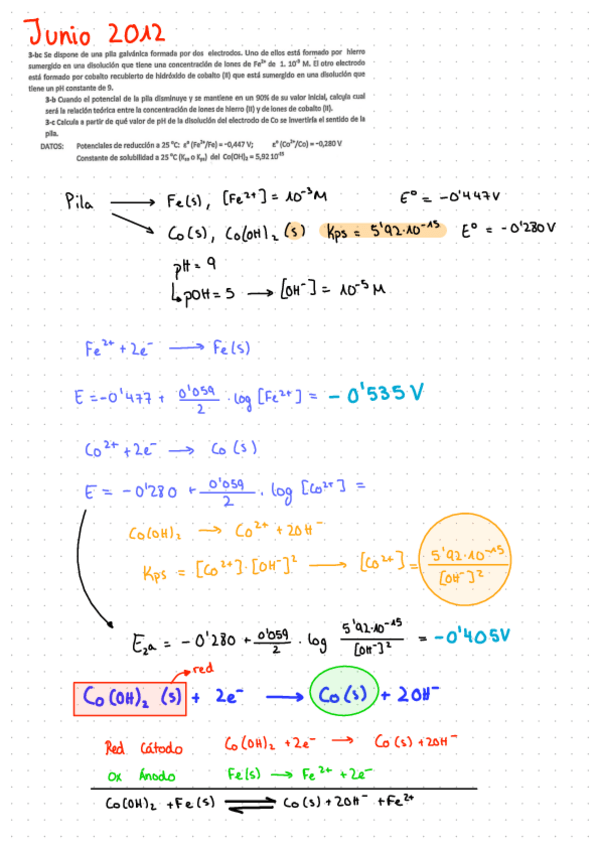 Junio 2012
3-bc Se dispone de una pila galvánica formada por dos electrodos. Uno de ellos está formado por hierro
sumergido en una disolución que tiene una concentración de iones de Fe²⁺ de 1. 10⁻³ M. El otro electrodo
está formado por cobalto recubierto de hidróxido de cobalto (II) que está sumergido en una disolución que
tiene un pH constante de 9.
3-b Cuando el potencial de la pila disminuye y se mantiene en un 90% de su valor inicial, calcula cual
será la relación teórica entre la concentración de iones de hierro (II) y de iones de cobalto (II).
3-c Calcula a partir de qué valor de pH de la disolución del electrodo de Co se invertiría el sentido de la
pila.
DATOS: Potenciales de reducción a 25 ºC: εº (Fe²⁺/Fe) = -0,447 V; εº (Co²⁺/Co) = -0,280 V
Constante de solubilidad a 25 ºC (Kₛₒ o Kₚₛ) del Co(OH)₂ = 5,92 10⁻¹⁵
Pila → Fe(s), [Fe²⁺] = 10⁻³ M E° = -0'447V
Co(s), Co(OH)₂ (s) Kps = 5'92·10⁻¹⁵ E° = -0'280V
pH = 9
↳ pOH = 5 → [OH⁻] = 10⁻⁵ M
Fe²⁺ + 2e⁻ → Fe(s)
E = -0'477 + 0'059/2 · log [Fe²⁺] = -0'535 V
Co²⁺ + 2e⁻ → Co (s)
E = -0'280 + 0'059/2 · log [Co²⁺] =
Co(OH)₂ → Co²⁺ + 2OH⁻
Kps = [Co²⁺]·[OH⁻]² → [Co²⁺] = 5'92·10⁻¹⁵/[OH⁻]²
E₂ₐ = -0'280 + 0'059/2 · log 5'92·10⁻¹⁵/[OH⁻]² = -0'405V
red
Co(OH)₂ (s) + 2e⁻ → Co(s) + 2OH⁻
Red Cátodo Co(OH)₂ + 2e⁻ → Co(s) + 2OH⁻
Ox Ánodo Fe(s) → Fe²⁺ + 2e⁻
Co(OH)₂ + Fe(s) ⇌ Co(s) + 2OH⁻ + Fe²⁺